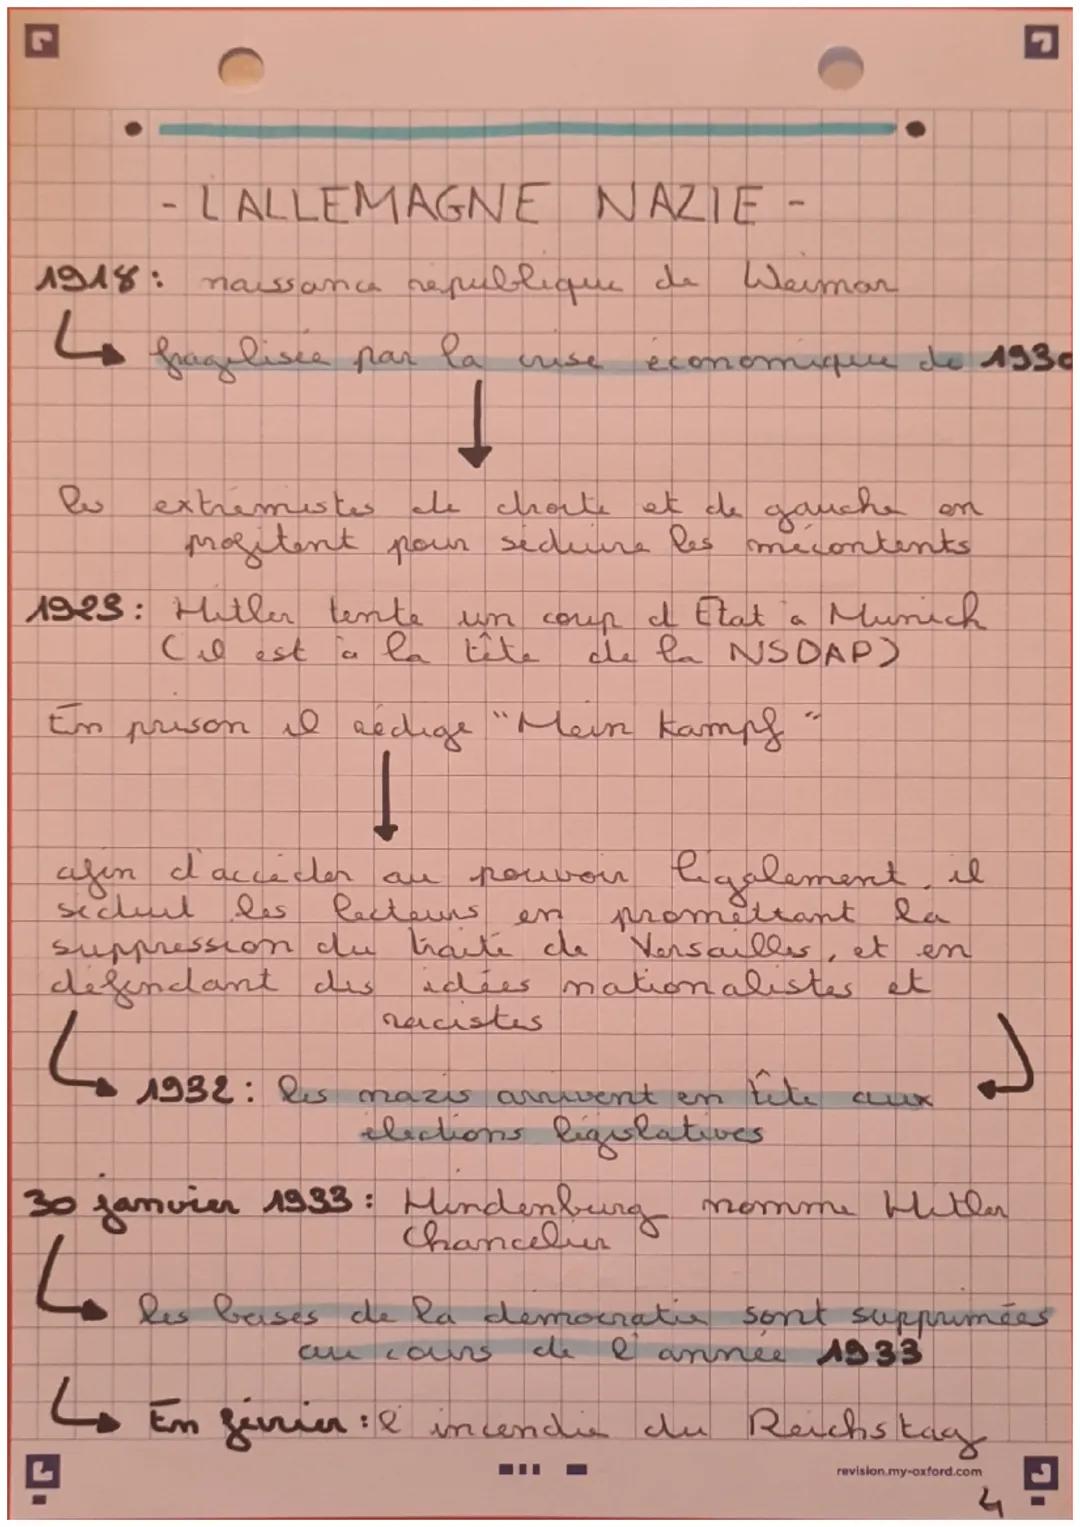 - L'ALLEMAGNE NAZIE -
1918 : naissance république de Weimar
fragilisée par la crise économique de 1930
les extrémistes de droite et de gauche en
profitent pour séduire les mécontents
1923 : Hitler tente un coup d'Etat à Munich
(il est à la tête de la NSDAP)
En prison il rédige "Mein Kampf"
afin d'accéder au pouvoir légalement, il
séduit les lecteurs en promettant la
suppression du traité de Versailles, et en
défendant des idées nationalistes et
racistes
1932 : les nazis arrivent en tête aux
élections législatives
30 janvier 1933 : Hindenburg nomme Hitler
Chancelier
les bases de la démocratie sont supprimées
au cours de l'année 1933
En février : l'incendie du Reichstag
revision.my-oxford.com
4